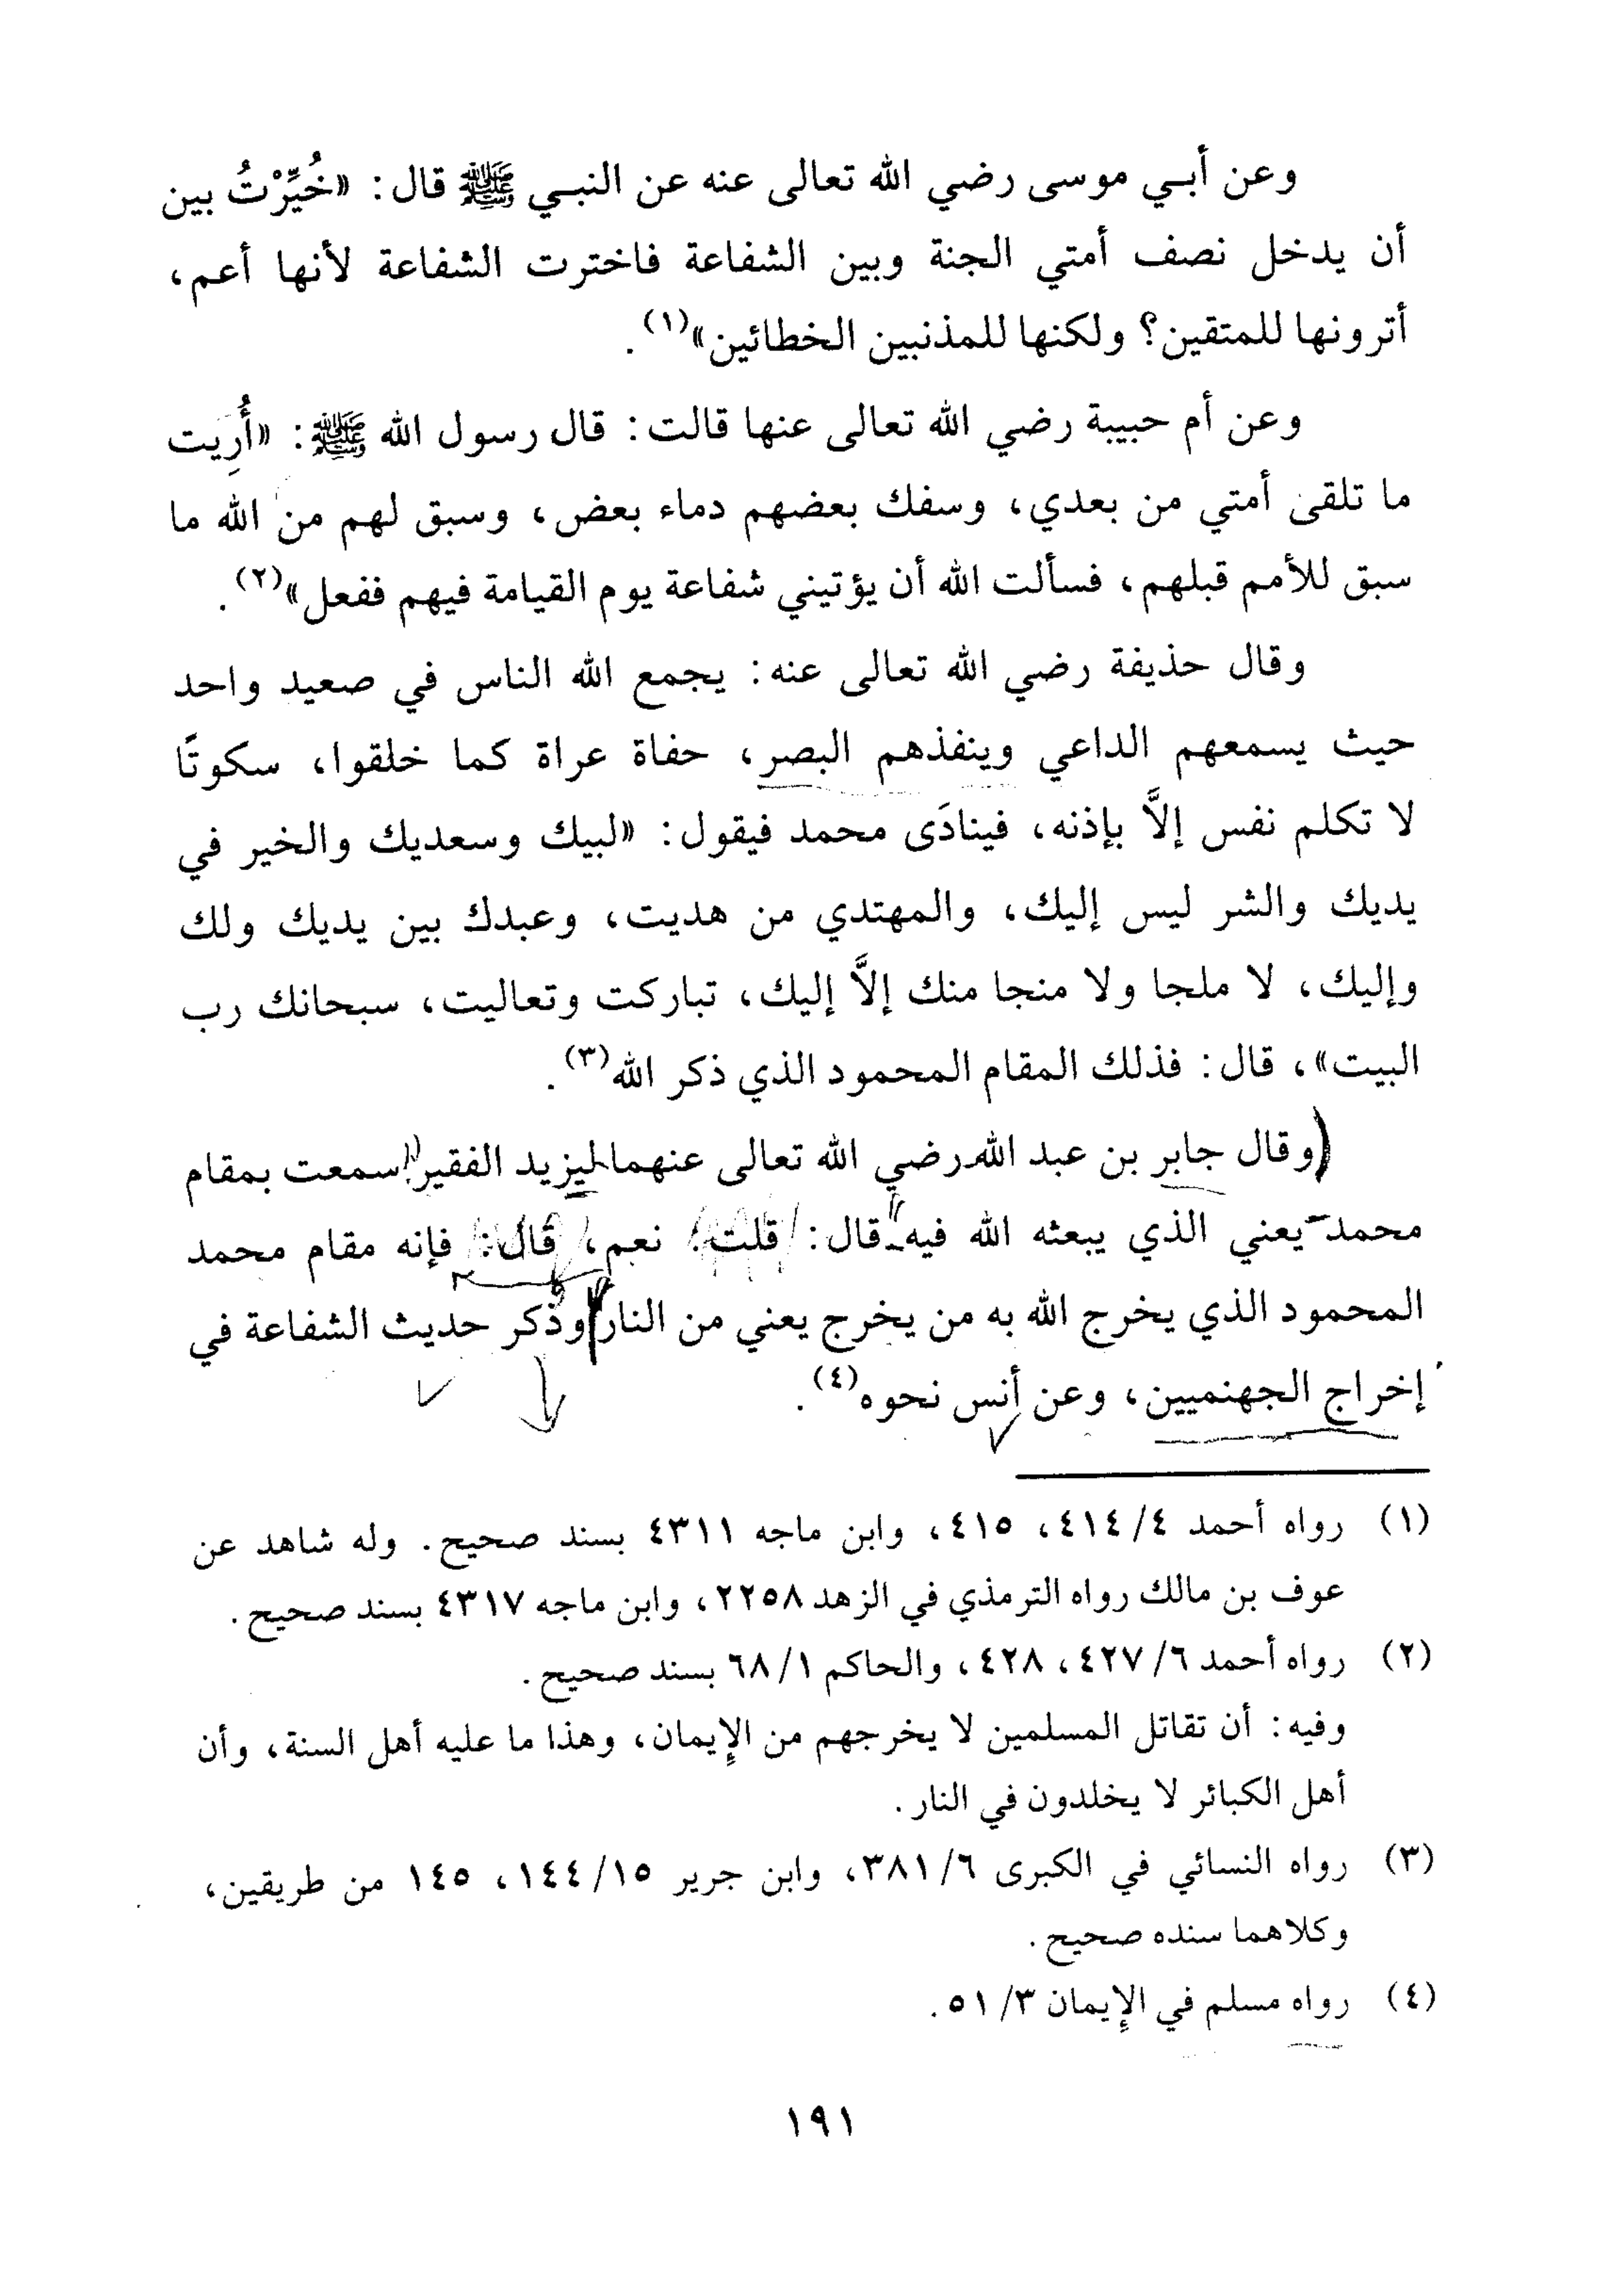 وعن أبـي موسى رضي الله تعالى عنه عن النبـي ﷺ قال: «خُيِّرْتُ بين
أن يدخل نصف أمتي الجنة وبين الشفاعة فاخترت الشفاعة لأنها أعم،
أترونها للمتقين؟ ولكنها للمذنبين الخطائين»(١).
وعن أم حبيبة رضي الله تعالى عنها قالت: قال رسول الله ﷺ: «أُرِيت
ما تلقى أمتي من بعدي، وسفك بعضهم دماء بعض، وسبق لهم من الله ما
سبق للأمم قبلهم، فسألت الله أن يؤتيني شفاعة يوم القيامة فيهم ففعل»(٢).
وقال حذيفة رضي الله تعالى عنه: يجمع الله الناس في صعيد واحد
حيث يسمعهم الداعي وينفذهم البصر، حفاة عراة كما خلقوا، سكوتًا
لا تكلم نفس إلاَّ بإذنه، فينادَى محمد فيقول: «لبيك وسعديك والخير في
يديك والشر ليس إليك، والمهتدي من هديت، وعبدك بين يديك ولك
وإليك، لا ملجا ولا منجا منك إلاَّ إليك، تباركت وتعاليت، سبحانك رب
البيت»، قال: فذلك المقام المحمود الذي ذكر الله(٣).
وقال جابر بن عبد الله رضي الله تعالى عنهما ليزيد الفقير: سمعت بمقام
محمد يعني الذي يبعثه الله فيه قال: قلت: نعم، قال: فإنه مقام محمد
المحمود الذي يخرج الله به من يخرج يعني من النار وذكر حديث الشفاعة في
إخراج الجهنميين، وعن أنس نحوه(٤).
(١) رواه أحمد ٤/٤١٤، ٤١٥، وابن ماجه ٤٣١١ بسند صحيح. وله شاهد عن
عوف بن مالك رواه الترمذي في الزهد ٢٢٥٨، وابن ماجه ٤٣١٧ بسند صحيح.
(٢) رواه أحمد ٦/٤٢٧، ٤٢٨، والحاكم ١/٦٨ بسند صحيح.
وفيه: أن تقاتل المسلمين لا يخرجهم من الإيمان، وهذا ما عليه أهل السنة، وأن
أهل الكبائر لا يخلدون في النار.
(٣) رواه النسائي في الكبرى ٦/٣٨١، وابن جرير ١٥/١٤٤، ١٤٥ من طريقين،
وكلاهما سنده صحيح.
(٤) رواه مسلم في الإيمان ٣/٥١.
١٩١